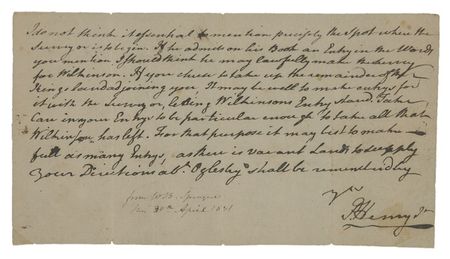 I do not think it essential to mention precisely the Spot where the
Surveyor is to begin. If he admits on his Book an Entry in the Words
you mention I should think he may lawfully make the Survey
for Wilkinson. If you chuse to take up the remainder of the
Kings land adjoining you, it may be well to make entrys for
it with the Surveyor, letting Wilkinsons Entry stand. Take
Care in your Entrys to be particular enough to take all that
Wilkinson has left. For that purpose it may best to make
full as many Entrys, as there is vacant Land to supply
Your Directions abt. Oglesby shall be remembred by
Yrs
P. Henry Jr
from W. B. Sprague
30th April 1831